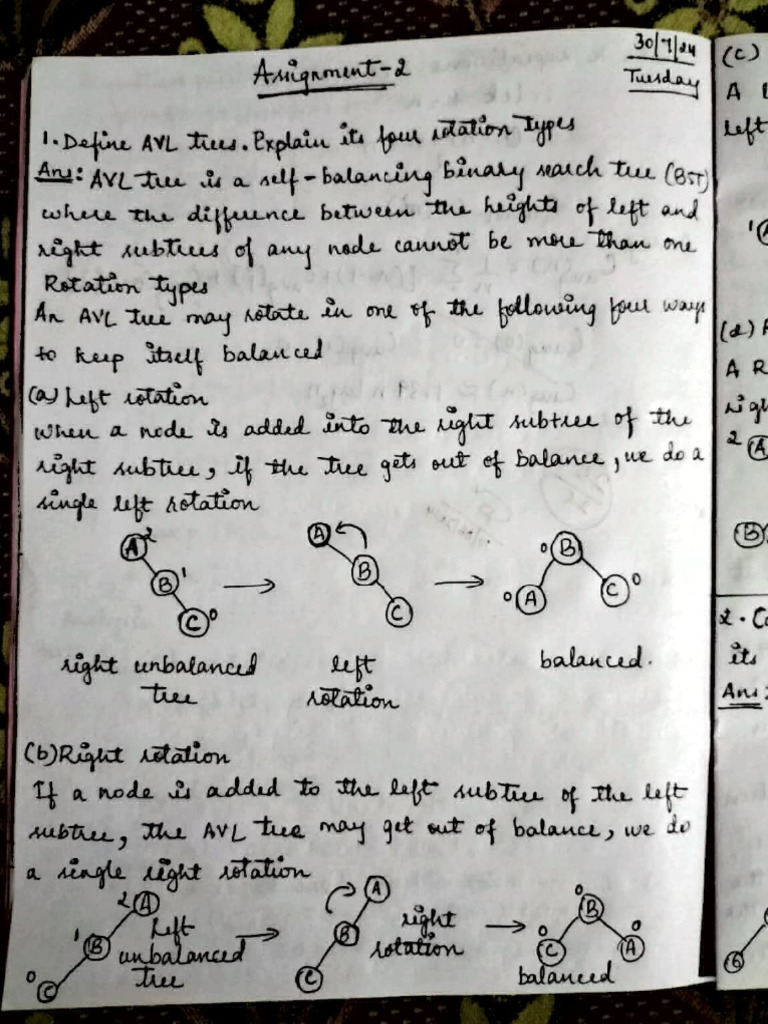 30/7/24
Tuesday
Assignment-2
1. Define AVL trees. Explain its four rotation types
Ans: AVL tree is a self-balancing binary search tree (BST)
where the difference between the heights of left and
right subtrees of any node cannot be more than one
Rotation types
An AVL tree may rotate in one of the following four ways
to keep itself balanced
(a) Left rotation
When a node is added into the right subtree of the
right subtree, if the tree gets out of balance, we do a
single left rotation
A 2
B 1
C 0
A
B
C
0 B
0 A
C 0
right unbalanced
tree
left
rotation
balanced.
(b) Right rotation
If a node is added to the left subtree of the left
subtree, the AVL tree may get out of balance, we do
a single right rotation
2 A
1 B
0 C
Left
unbalanced
tree
A
B
C
right
rotation
0 B
0 C
0 A
balanced
(c)
A
left
1
(d)
A R
righ
2 A
B
2. Co
its
Ans:
6